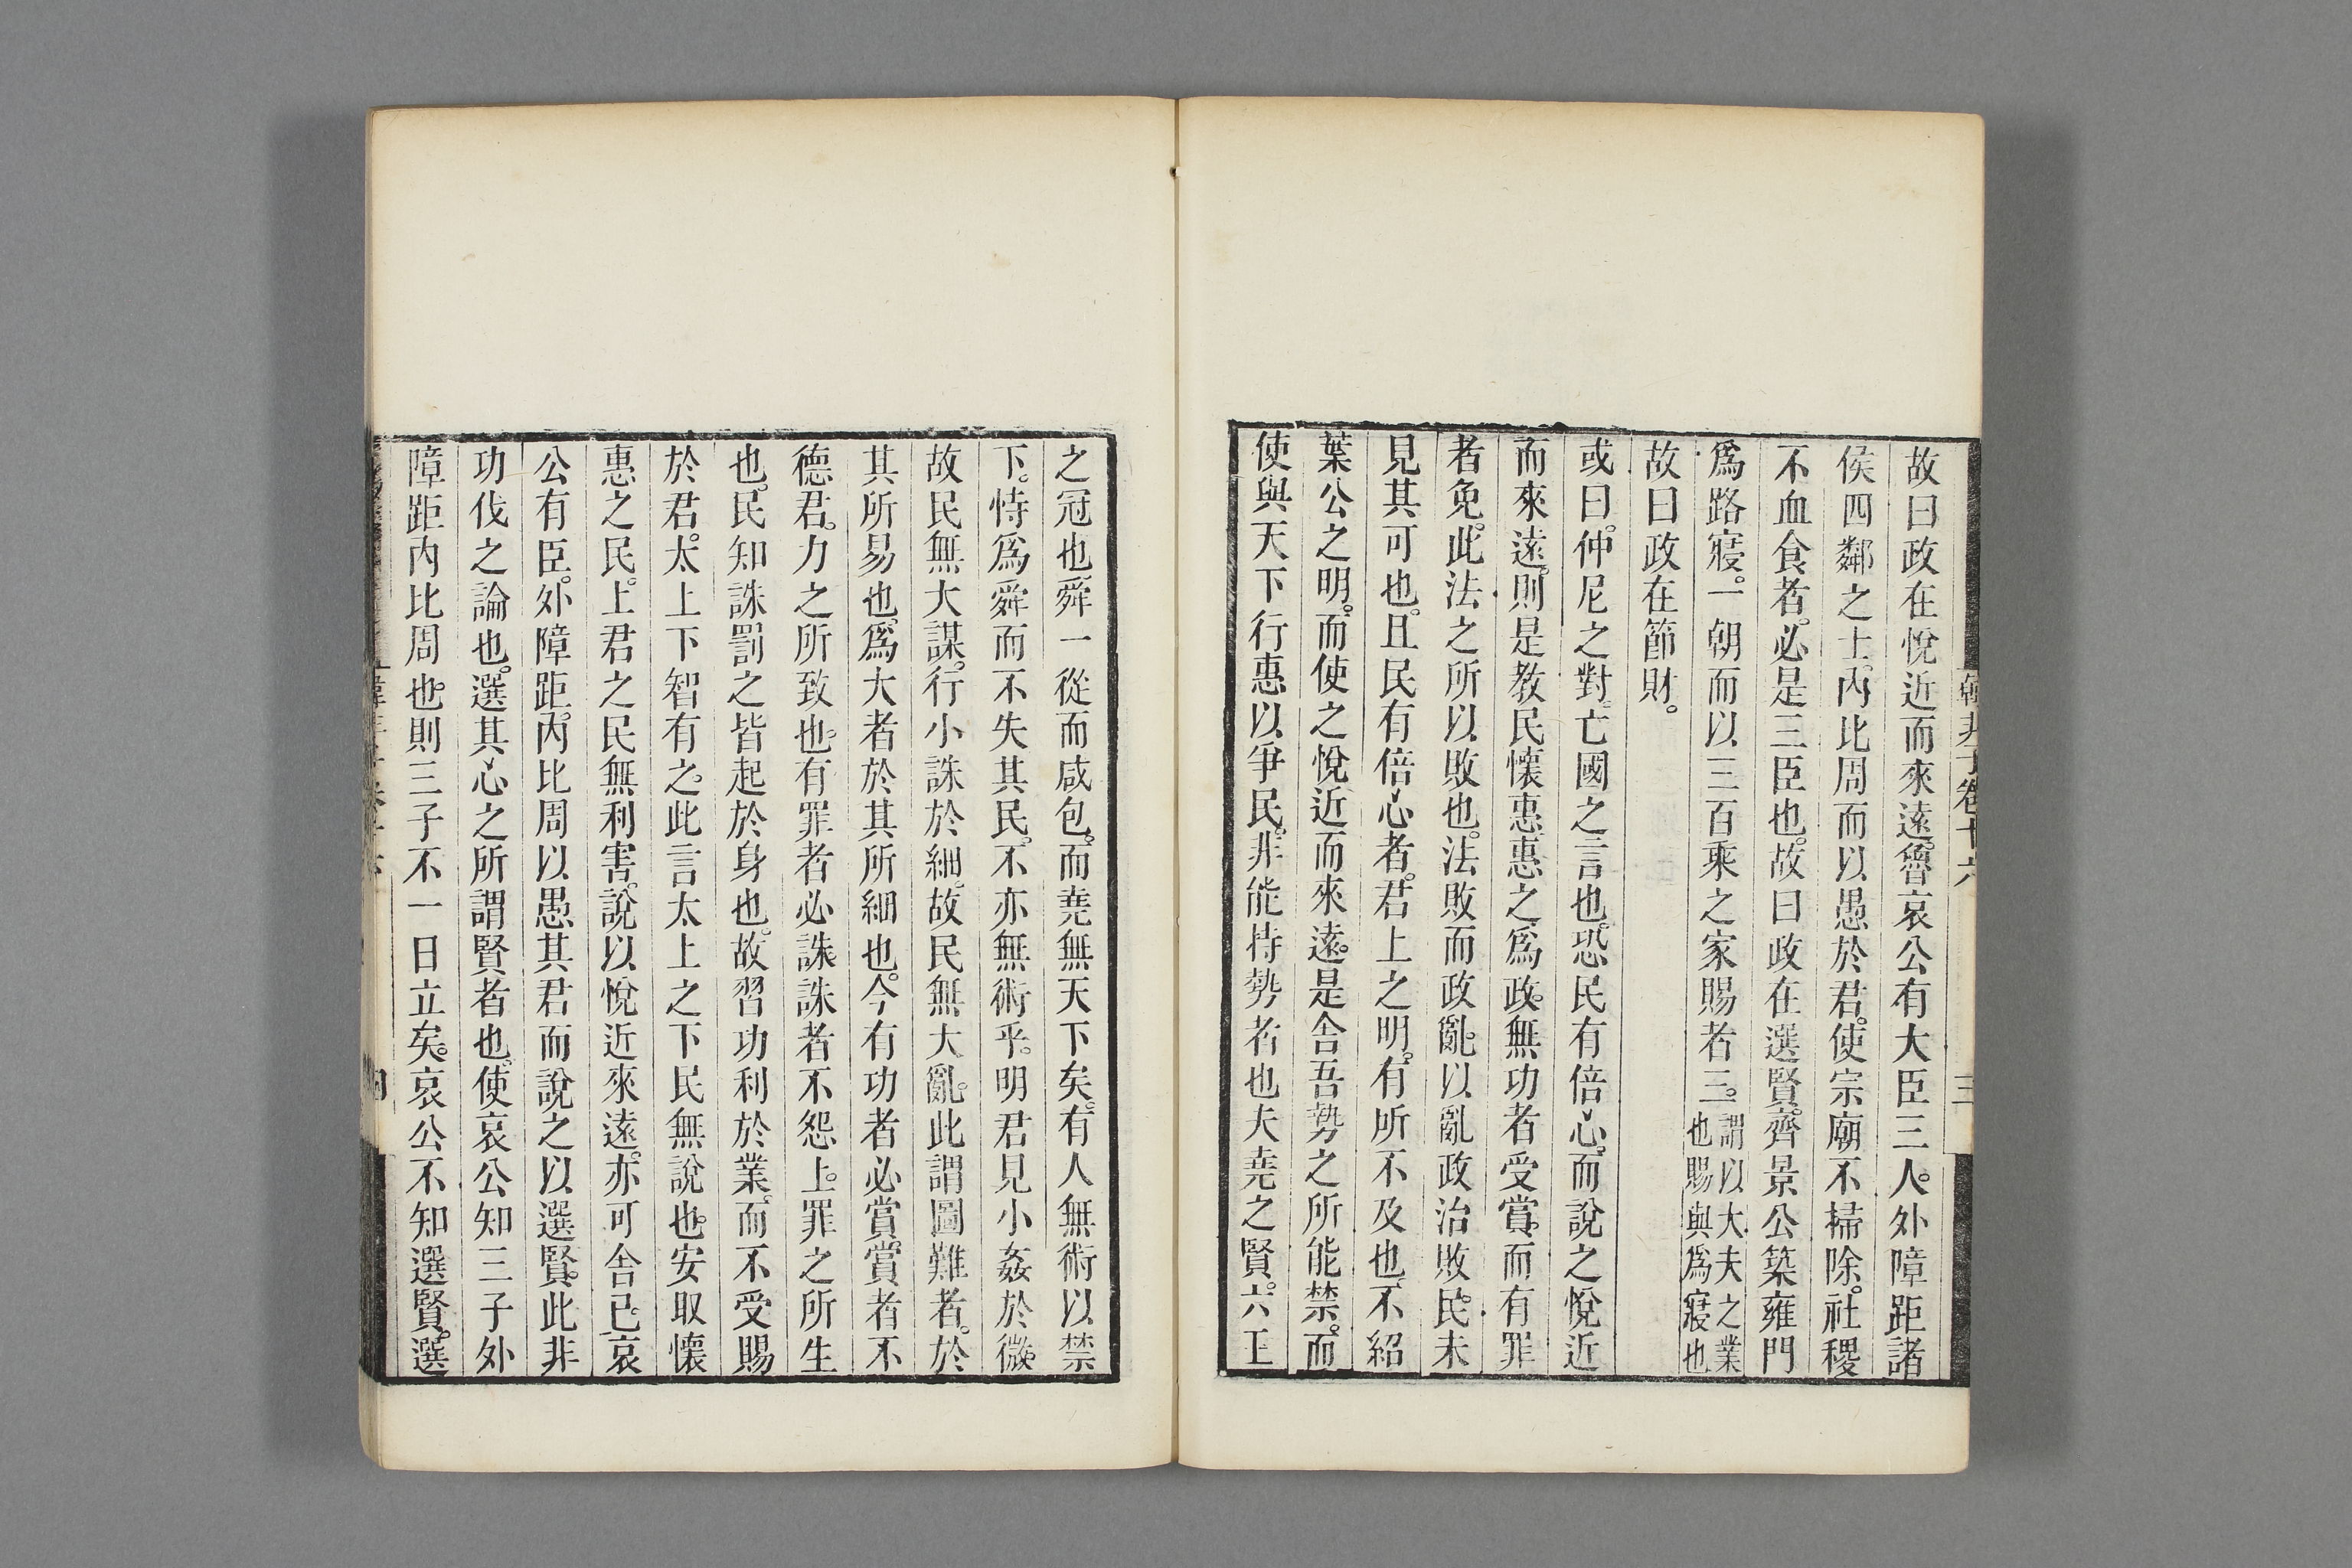 故曰政在悅近而來遠。魯哀公有大臣三人。外障距諸
侯四鄰之士。內比周而以愚於君。使宗廟不掃除。社稷
不血食者。必是三臣也。故曰政在選賢。齊景公築雍門
爲路寢。一朝而以三百乘之家賜者三。謂以大夫之業
也賜與爲寢也
故曰政在節財。
或曰。仲尼之對。亡國之言也。恐民有倍心。而說之悅近
而來遠。則是教民懷惠惠之爲政。無功者受賞。而有罪
者免。此法之所以敗也。法敗而政亂。以亂政治敗民。未
見其可也。且民有倍心者。君上之明。有所不及也。不紹
葉公之明。而使之悅近而來遠。是舍吾勢之所能禁。而
使與天下行惠以爭民。非能持勢者也夫堯之賢。六王
之冠也舜一從而咸包。而堯無天下矣。有人無術以禁
下。恃爲舜而不失其民。不亦無術乎。明君見小姦於微。
故民無大謀。行小誅於細。故民無大亂。此謂圖難者。於
其所易也。爲大者於其所細也。今有功者必賞。賞者不
德君。力之所致也。有罪者必誅。誅者不怨上。罪之所生
也。民知誅罰之皆起於身也。故習功利於業。而不受賜
於君。太上下智有之。此言太上之下民無說也。安取懷
惠之民。上君之民無利害。說以悅近來遠。亦可舍已。哀
公有臣。外障距。內比周以愚其君而說之以選賢。此非
功伐之論也。選其心之所謂賢者也。使哀公知三子外
障距內比周也。則三子不一日立矣。哀公不知選賢。選
韓非子卷十六
三